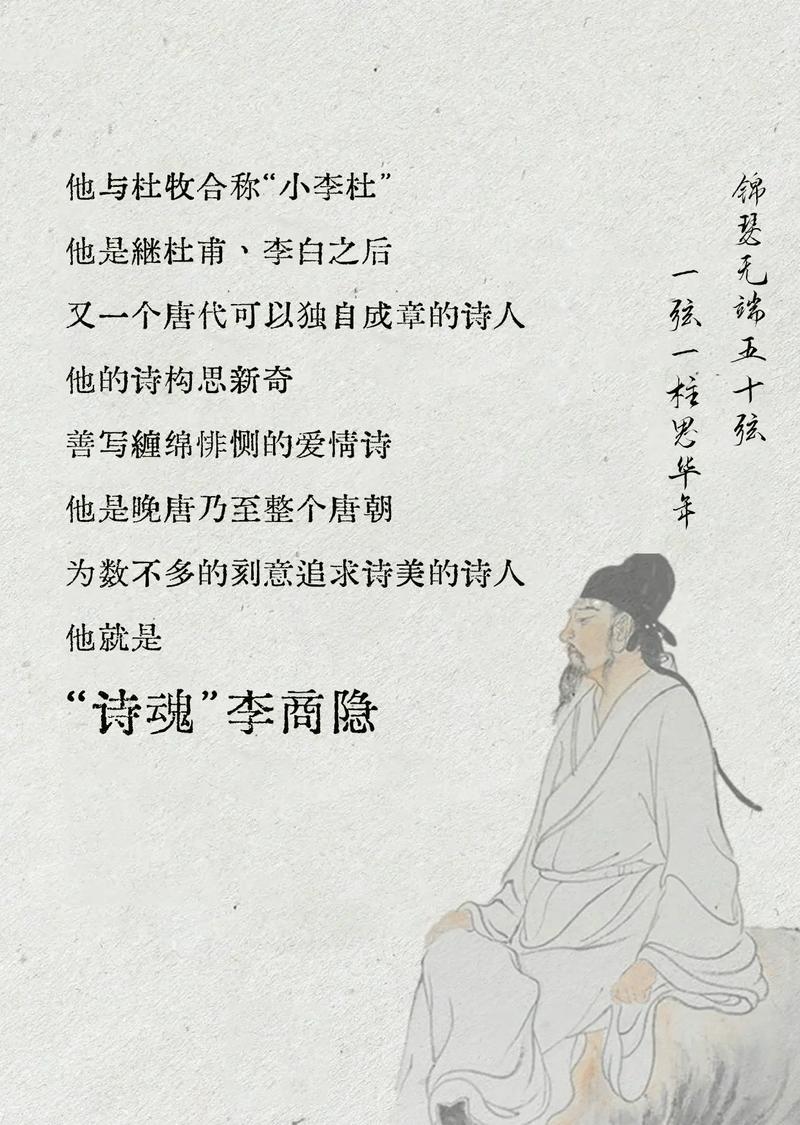 他与杜牧合称“小李杜”
他是継杜甫、李白之后
又一个唐代可以独自成章的诗人
他的诗构思新奇
善写纏绵悱恻的爱情诗
他是晚唐乃至整个唐朝
为数不多的刻意追求诗美的诗人
他就是
“诗魂”李商隐
锦瑟无端五十弦
一弦一柱思华年